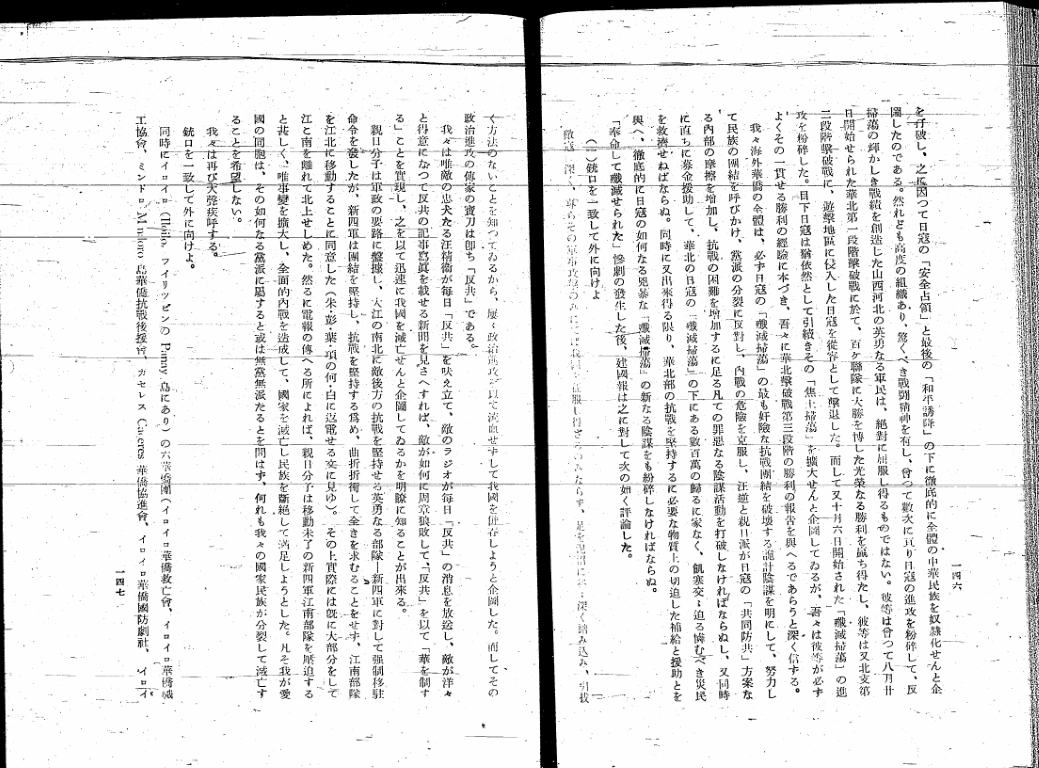 一四六
を打破し、之に因つて日寇の「安全占領」と最後の「和平誘降」の下に徹底的に全體の中華民族を奴隷化せんと企
圖したのである。然れども高度の組織あり、驚くべき戰鬪精神を有し、曾つて數次に亘り日寇の進攻を粉碎して、反
掃蕩の輝かしき戰績を創造した山西河北の英勇なる軍民は、絶對に屈服し得るものではない。彼等は曾つて八月廿
日開始せられた華北第一段階擊破戰に於て、百ヶ聯隊に大勝を博した光榮なる勝利を贏ち得たし、彼等は又北支第
二段階擊破戰に、遊擊地區に侵入した日寇を從容として擊退した。而して又十月六日開始された「殲滅掃蕩」の進
攻を粉碎した。目下日寇は猶依然として引續きその「焦土掃蕩」を擴大せんと企圖してゐるが、吾々は彼等が必ず
よくその一貫せる勝利の經驗に本づき、吾々に華北擊破戰第三段階の勝利の報告を與へるであらうと深く信ずる。
我々海外華僑の全體は、必ず日寇の「殲滅掃蕩」の最も奸險な抗戰團結を破壞する詭計陰謀を明にして、努力し
て民族の團結を呼びかけ、黨派の分裂に反對し、内戰の危險を克服し、汪逆と親日派が日寇の「共同防共」方案な
る内部の摩擦を增加し、抗戰の困難を增加するに足る凡ての罪惡なる陰謀活動を打破しなければならぬし、又同時
に直ちに募金援助して、華北の日寇の「殲滅掃蕩」の下にある數百萬の歸るに家なく、飢寒交々迫る憐むべき災民
を救濟せねばならぬ。同時に又出來得る限り、華北部の抗戰を堅持するに必要な物質上の切迫した補給と援助とを
與へ、徹底的に日寇の如何なる兇暴な「殲滅掃蕩」の新たなる陰謀をも粉碎しなければならぬ。
「奉命して殲滅せられた」慘劇の發生した後、建國報は之に對して次の如く評論した。
(二)銃口を一致して外に向けよ
敵寇 深く、
く方法のないことを知つてゐるから、屢々政治進攻を以て流血せずして我國を併呑しようと企圖した。而してその
政治進攻の傳家の寶刀は卽ち「反共」である。
我々は唯敵の忠犬たる汪精衛が每日「反共」を吠え立て、敵のラジオが每日「反共」の消息を放送し、敵が洋々
と得意になつて反共の記事寫眞を載せる新聞を見さへすれば、敵が如何に周章狼敗して、「反共」を以て「華を制す
る」ことを實現し、之を以て迅速に我國を滅亡せんと企圖してゐるかを明瞭に知ることが出來る。
親日分子は軍政の要路に盤據し、大江の南北に敵後方の抗戰を堅持せる英勇なる部隊―新四軍に對して强制移駐
命令を發したが、新四軍は團結を堅持し、抗戰を堅持する爲め、曲折折衝して全きを求むることをせず、江南部隊
を江北に移動することに同意した(朱・彭・葉・項の何・白に返電せる文に見ゆ)。その上實際には旣に大部分をして
江と南を離れて北上せしめた。然るに電報の傳へる所によれば、親日分子は移動未了の新四軍江南部隊を壓迫する
と甚しく、唯事變を擴大し、全面的内戰を造成して、國家を滅亡し民族を斷絶して滿足しようとした。凡そ我が愛
國の同胞は、その如何なる黨派に屬すると或は無黨無派たるとを問はず、何れも我々の國家民族が分裂して滅亡す
ることを希望しない。
我々は再び大聲疾呼する。
銃口を一致して外に向けよ。
同時にイロイロ(Iloilo, フイリツピンの Panay 島にあり)の六華僑團(イロイロ華僑救亡會、イロイロ華僑職
工協會、ミンドロ Mindoro 島華僑抗戰後援會、カセレス Caceres 華僑協進會、イロイロ華僑國防劇社、イロイ
一四七